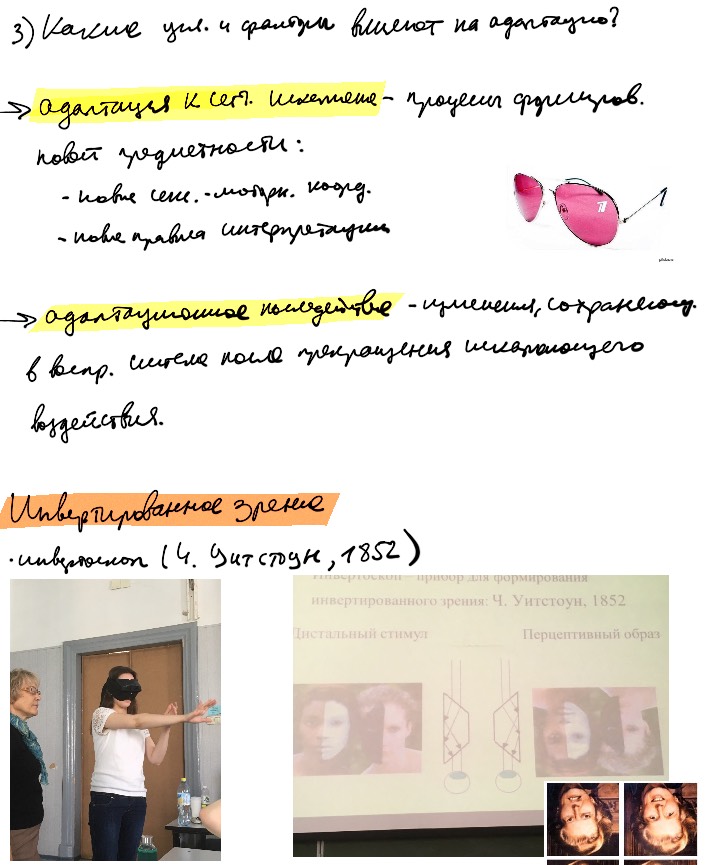 3) Какие усл. и факторы влияют на адаптацию?
→ адаптация к сет. искажению - процессы формиров.
новой предметности:
- новые сенс.-моторн. коорд.
- новые правила интерпретации
→ адаптационное последействие - изменения, сохраняющ.
в воспр. система после прекращения искажающего
воздействия.
Инвертированное зрение
· инвертоскоп (Ч. Уитстоун, 1852)
Инвертоскоп - прибор для формирования
инвертированного зрения: Ч. Уитстоун, 1852
Дистальный стимул
Перцептивный образ